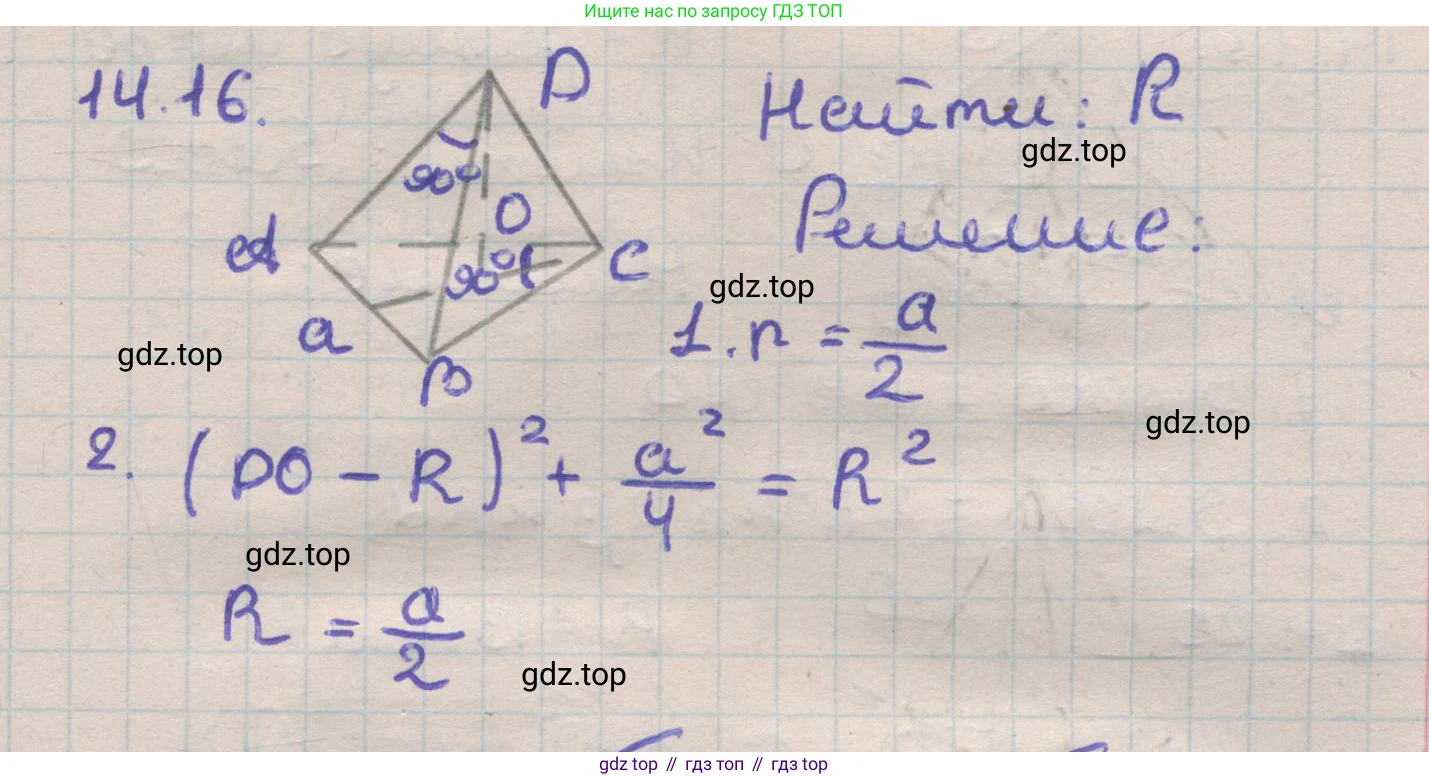 Ищите нас по запросу ГДЗ ТОП
14.16.
D
Найти: R
gdz.top
90°
Решение:
O
A
C
90°
gdz.top
a
1. r = a/2
gdz.top
B
gdz.top
2. (DO - R)² + a²/4 = R²
gdz.top
R = a/2
gdz.top
gdz top // гдз топ // гдз top